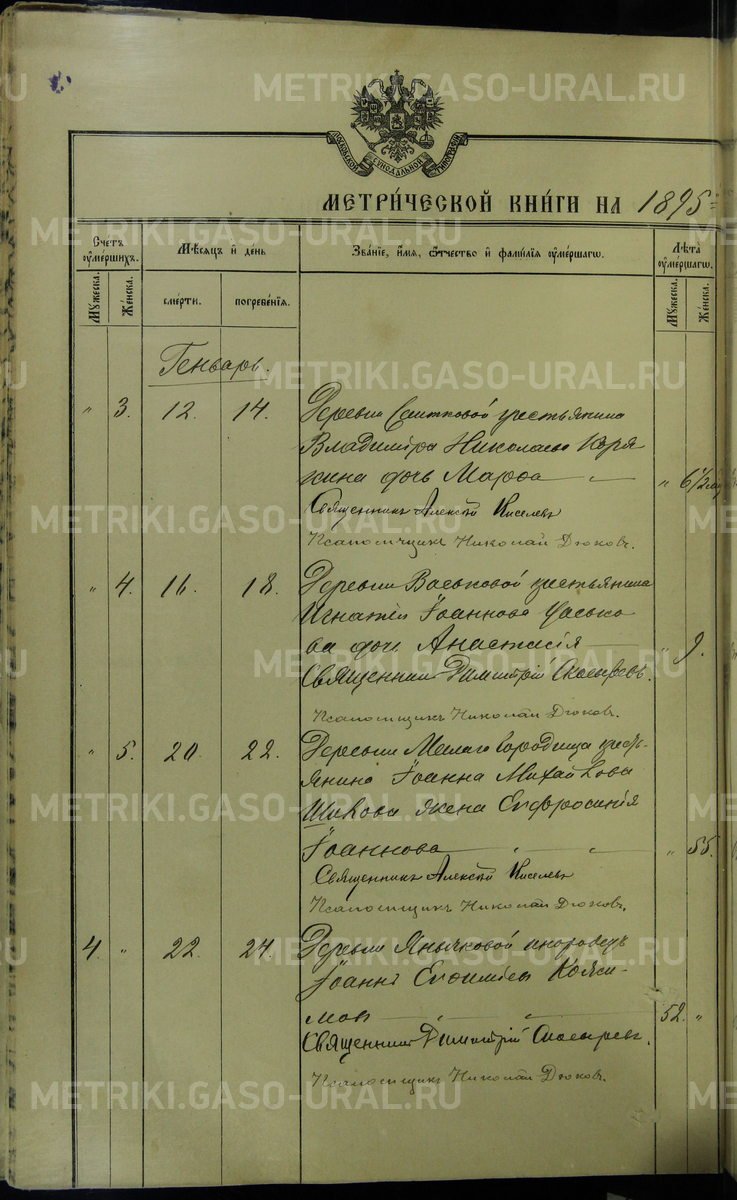 METRIKI.GASO-URAL.RU
МОСКОВСКОЙ СѴНОДАЛЬНОЙ ТИПОГРАФІИ
МЕТРИ́ЧЕСКОЙ КНИ́ГИ НА 1895
Счетъ оу҆ме́ршихъ.
Мѣ́сяцъ и҆ де́нь
Зва́нїе, и҆́мя, ѻ҆́тчество и҆ фами́лїя оу҆ме́ршагѡ.
Лѣ́та оу҆ме́ршагѡ.
Мꙋжеска. Же́нска.
сме́рти. погребе́нїя.
Мꙋжеска. Же́нска.
Генварь.
" 3. 12. 14. Деревни крестьянина
Владиміра Николаева Коря
кина дочь Марѳа " " 6 1/2
Священникъ Алексѣй Киселевъ
Псаломщикъ Николай Дюковъ.
" 4. 16. 18. Деревни Васьковой крестьянина
Игнатія Іоаннова Васько
ва дочь Анастасія " 9.
Священникъ Димитрій
Псаломщикъ Николай Дюковъ.
" 5. 20. 22. Деревни Малаго Городища кресть-
янина Іоанна Михайлова
Шихова жена Евфросинія
Іоаннова " " " 55.
Священникъ Алексѣй Киселевъ
Псаломщикъ Николай Дюковъ.
4 " 22. 24. Деревни Янычковой инородецъ
Іоаннъ Евѳиміевъ
" " 52. "
Священникъ Димитрій
Псаломщикъ Николай Дюковъ.